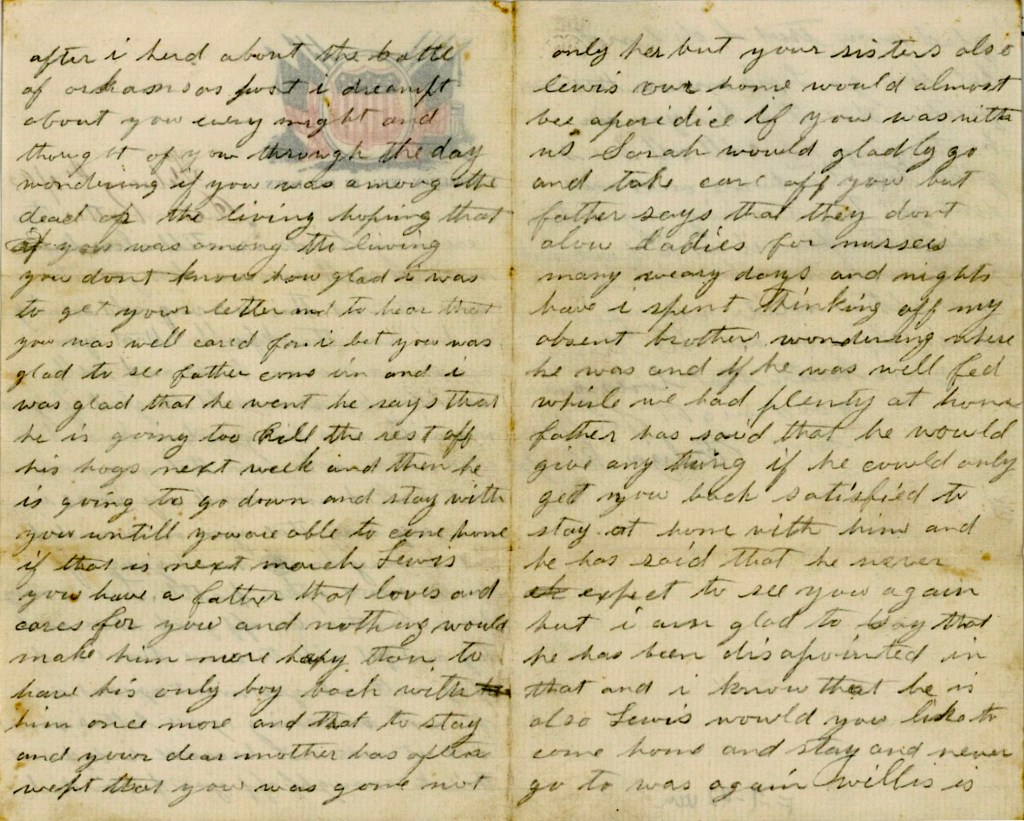 after i herd about the battle
of arkansas post i dreampt
about you every night and
thought of you through the day
wondering if you was among the
dead or the living hoping that
you was among the living
you dont know how glad i was
to get your letter and to hear that
you was well cared for i bet you was
glad to see father come in and i
was glad that he went he says that
he is going too kill the rest off
his hogs next week and then he
is going to go down and stay with
you untill you are able to come home
if that is next march Lewis
you have a father that loves and
cares for you and nothing would
make him more happy than to
have his only boy back with
him once more and that to stay
and your dear mother has often
wept that you was gone not
only her but your sisters also
lewis our home would almost
bee a paridice if you was with
us Sarah would gladly go
and take care off you but
father says that they dont
alow ladies for nurses
many weary days and nights
have i spent thinking off my
absent brother wondering where
he was and if he was well fed
while we had plenty at home
father has said that he would
give any thing if he could only
get you back satisfied to
stay at home with him and
he has said that he never
expect to see you again
but i am glad to say that
he has been disapointed in
that and i know that he is
also Lewis would you like to
come home and stay and never
go to was again willis is